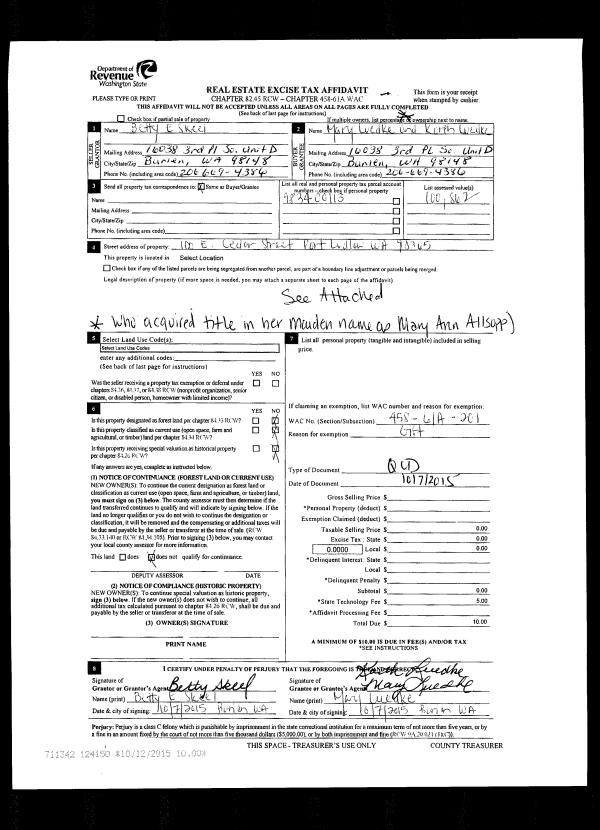 Department of
Revenue
Washington State
REAL ESTATE EXCISE TAX AFFIDAVIT
This form is your receipt
PLEASE TYPE OR PRINT
CHAPTER 82.45 RCW – CHAPTER 458-61A WAC
when stamped by cashier.
THIS AFFIDAVIT WILL NOT BE ACCEPTED UNLESS ALL AREAS ON ALL PAGES ARE FULLY COMPLETED
(See back of last page for instructions)
Check box if partial sale of property
If multiple owners, list percentage of ownership next to name.
1 Name Betty E Skeel
2 Name Mary Luedke and Luedke
SELLER GRANTOR
BUYER GRANTEE
Mailing Address 16038 3rd Pl So. Unit D
Mailing Address 16038 3rd Pl So. Unit D
City/State/Zip Burien, WA 98148
City/State/Zip Burien, WA 98148
Phone No. (including area code) 206-669-4386
Phone No. (including area code) 206-669-4386
3 Send all property tax correspondence to: Same as Buyer/Grantee
List all real and personal property tax parcel account numbers – check box if personal property
List assessed value(s)
Name
Mailing Address
City/State/Zip
Phone No. (including area code)
4 Street address of property: 100 E. Cedar Street Port Ludlow WA 98365
This property is located in Select Location
Check box if any of the listed parcels are being segregated from another parcel, are part of a boundary line adjustment or parcels being merged.
Legal description of property (if more space is needed, you may attach a separate sheet to each page of the affidavit)
See Attached
* Who acquired title in her maiden name as Mary Ann Allsopp)
5 Select Land Use Code(s):
Select Land Use Codes
enter any additional codes:
(See back of last page for instructions)
YES NO
Was the seller receiving a property tax exemption or deferral under
chapters 84.36, 84.37, or 84.38 RCW (nonprofit organization, senior
citizen, or disabled person, homeowner with limited income)?
6
YES NO
Is this property designated as forest land per chapter 84.33 RCW?
Is this property classified as current use (open space, farm and
agricultural, or timber) land per chapter 84.34 RCW?
Is this property receiving special valuation as historical property
per chapter 84.26 RCW?
If any answers are yes, complete as instructed below.
(1) NOTICE OF CONTINUANCE (FOREST LAND OR CURRENT USE)
NEW OWNER(S): To continue the current designation as forest land or
classification as current use (open space, farm and agriculture, or timber) land,
you must sign on (3) below. The county assessor must then determine if the
land transferred continues to qualify and will indicate by signing below. If the
land no longer qualifies or you do not wish to continue the designation or
classification, it will be removed and the compensating or additional taxes will
be due and payable by the seller or transferor at the time of sale. (RCW
84.33.140 or RCW 84.34.108). Prior to signing (3) below, you may contact
your local county assessor for more information.
This land does does not qualify for continuance.
DEPUTY ASSESSOR DATE
(2) NOTICE OF COMPLIANCE (HISTORIC PROPERTY)
NEW OWNER(S): To continue special valuation as historic property,
sign (3) below. If the new owner(s) does not wish to continue, all
additional tax calculated pursuant to chapter 84.26 RCW, shall be due and
payable by the seller or transferor at the time of sale.
(3) OWNER(S) SIGNATURE
PRINT NAME
7 List all personal property (tangible and intangible) included in selling
price.
If claiming an exemption, list WAC number and reason for exemption:
WAC No. (Section/Subsection) 458-61A-201
Reason for exemption
Gift
Type of Document QCD
Date of Document 10/7/2015
Gross Selling Price $
*Personal Property (deduct) $
Exemption Claimed (deduct) $
Taxable Selling Price $ 0.00
Excise Tax : State $ 0.00
0.0000 Local $ 0.00
*Delinquent Interest: State $
Local $
*Delinquent Penalty $
Subtotal $ 0.00
*State Technology Fee $ 5.00
*Affidavit Processing Fee $
Total Due $ 10.00
A MINIMUM OF $10.00 IS DUE IN FEE(S) AND/OR TAX
*SEE INSTRUCTIONS
8 I CERTIFY UNDER PENALTY OF PERJURY THAT THE FOREGOING IS TRUE AND CORRECT.
Signature of
Grantor or Grantor's Agent Betty Skeel
Name (print) Betty E Skeel
Date & city of signing: 10/7/2015 Burien WA
Signature of
Grantee or Grantee's Agent Mary Luedke
Name (print) Mary Luedke
Date & city of signing: 10/7/2015 Burien WA
Perjury: Perjury is a class C felony which is punishable by imprisonment in the state correctional institution for a maximum term of not more than five years, or by
a fine in an amount fixed by the court of not more than five thousand dollars ($5,000.00), or by both imprisonment and fine (RCW 9A.20.021 (1C)).
THIS SPACE - TREASURER'S USE ONLY COUNTY TREASURER
711342 124150 *10/12/2015 10.00*